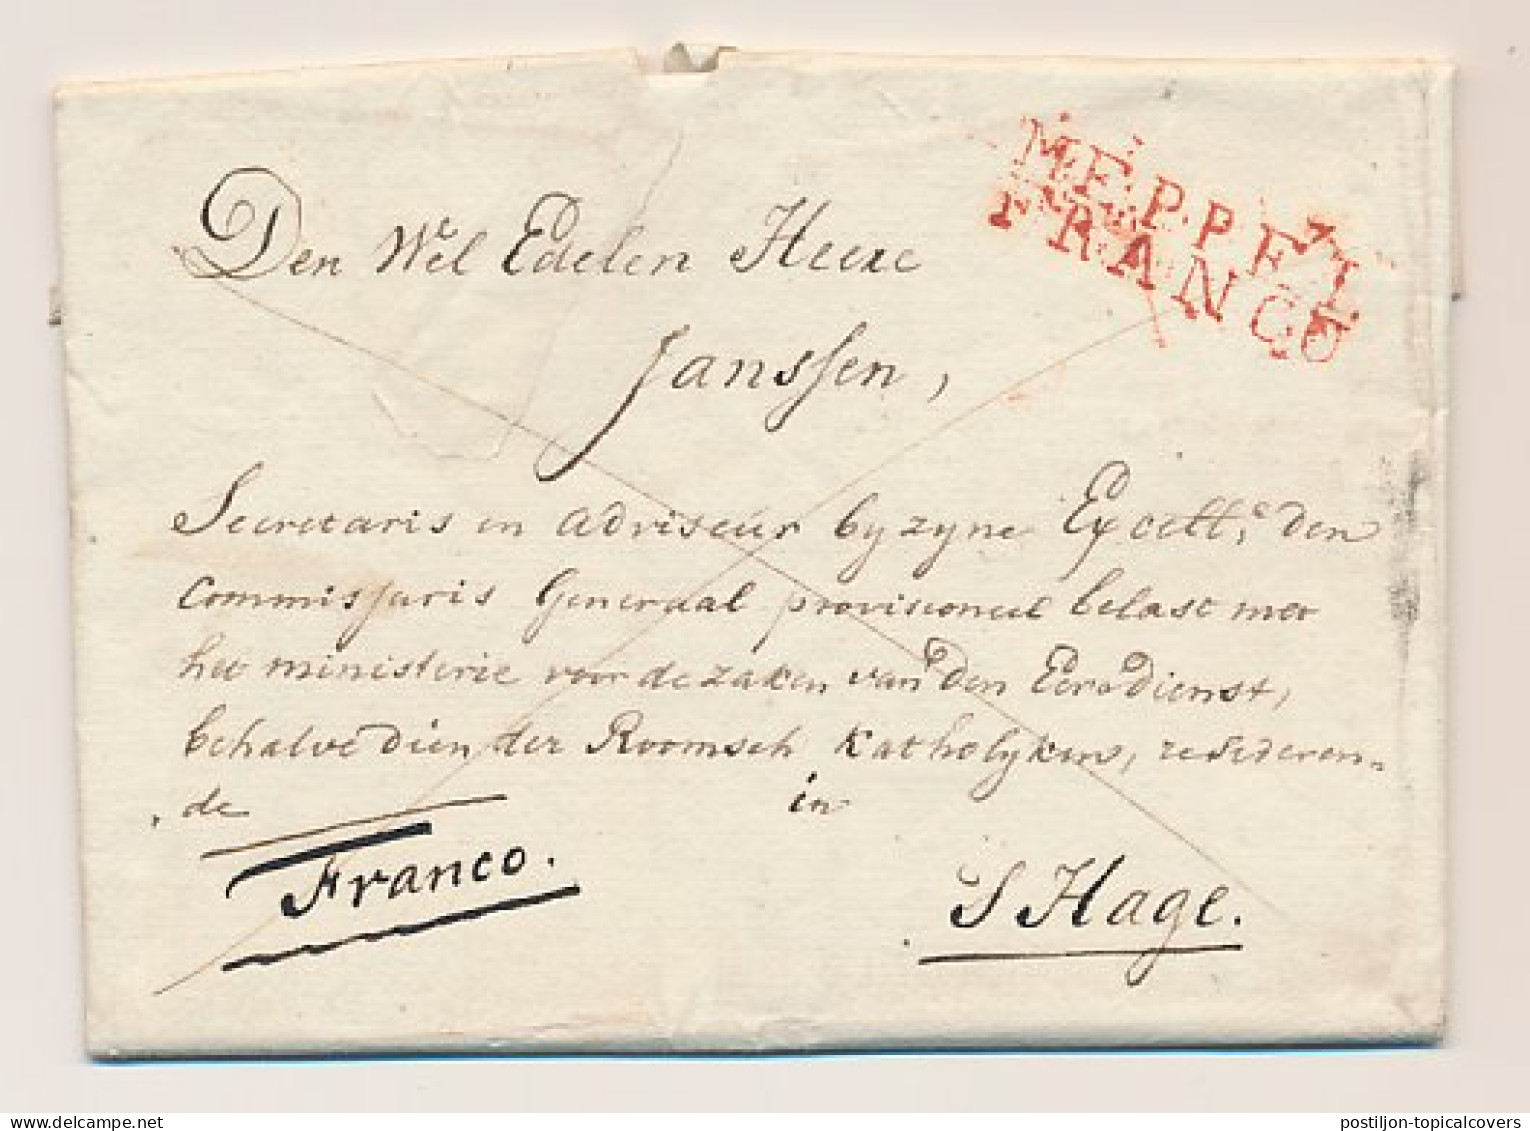 MEPPEL
FRANCO
Den Wel Edelen Heere
Janssen,
Secretaris en adviseur by zyne Excell.e den
Commissaris Generaal provisioneel belast met
het ministerie voor de zaken van den Eeredienst,
behalve dien der Roomsch Katholyken, resideren=
de in
Franco.
S Hage.
postiljon-topicalcovers